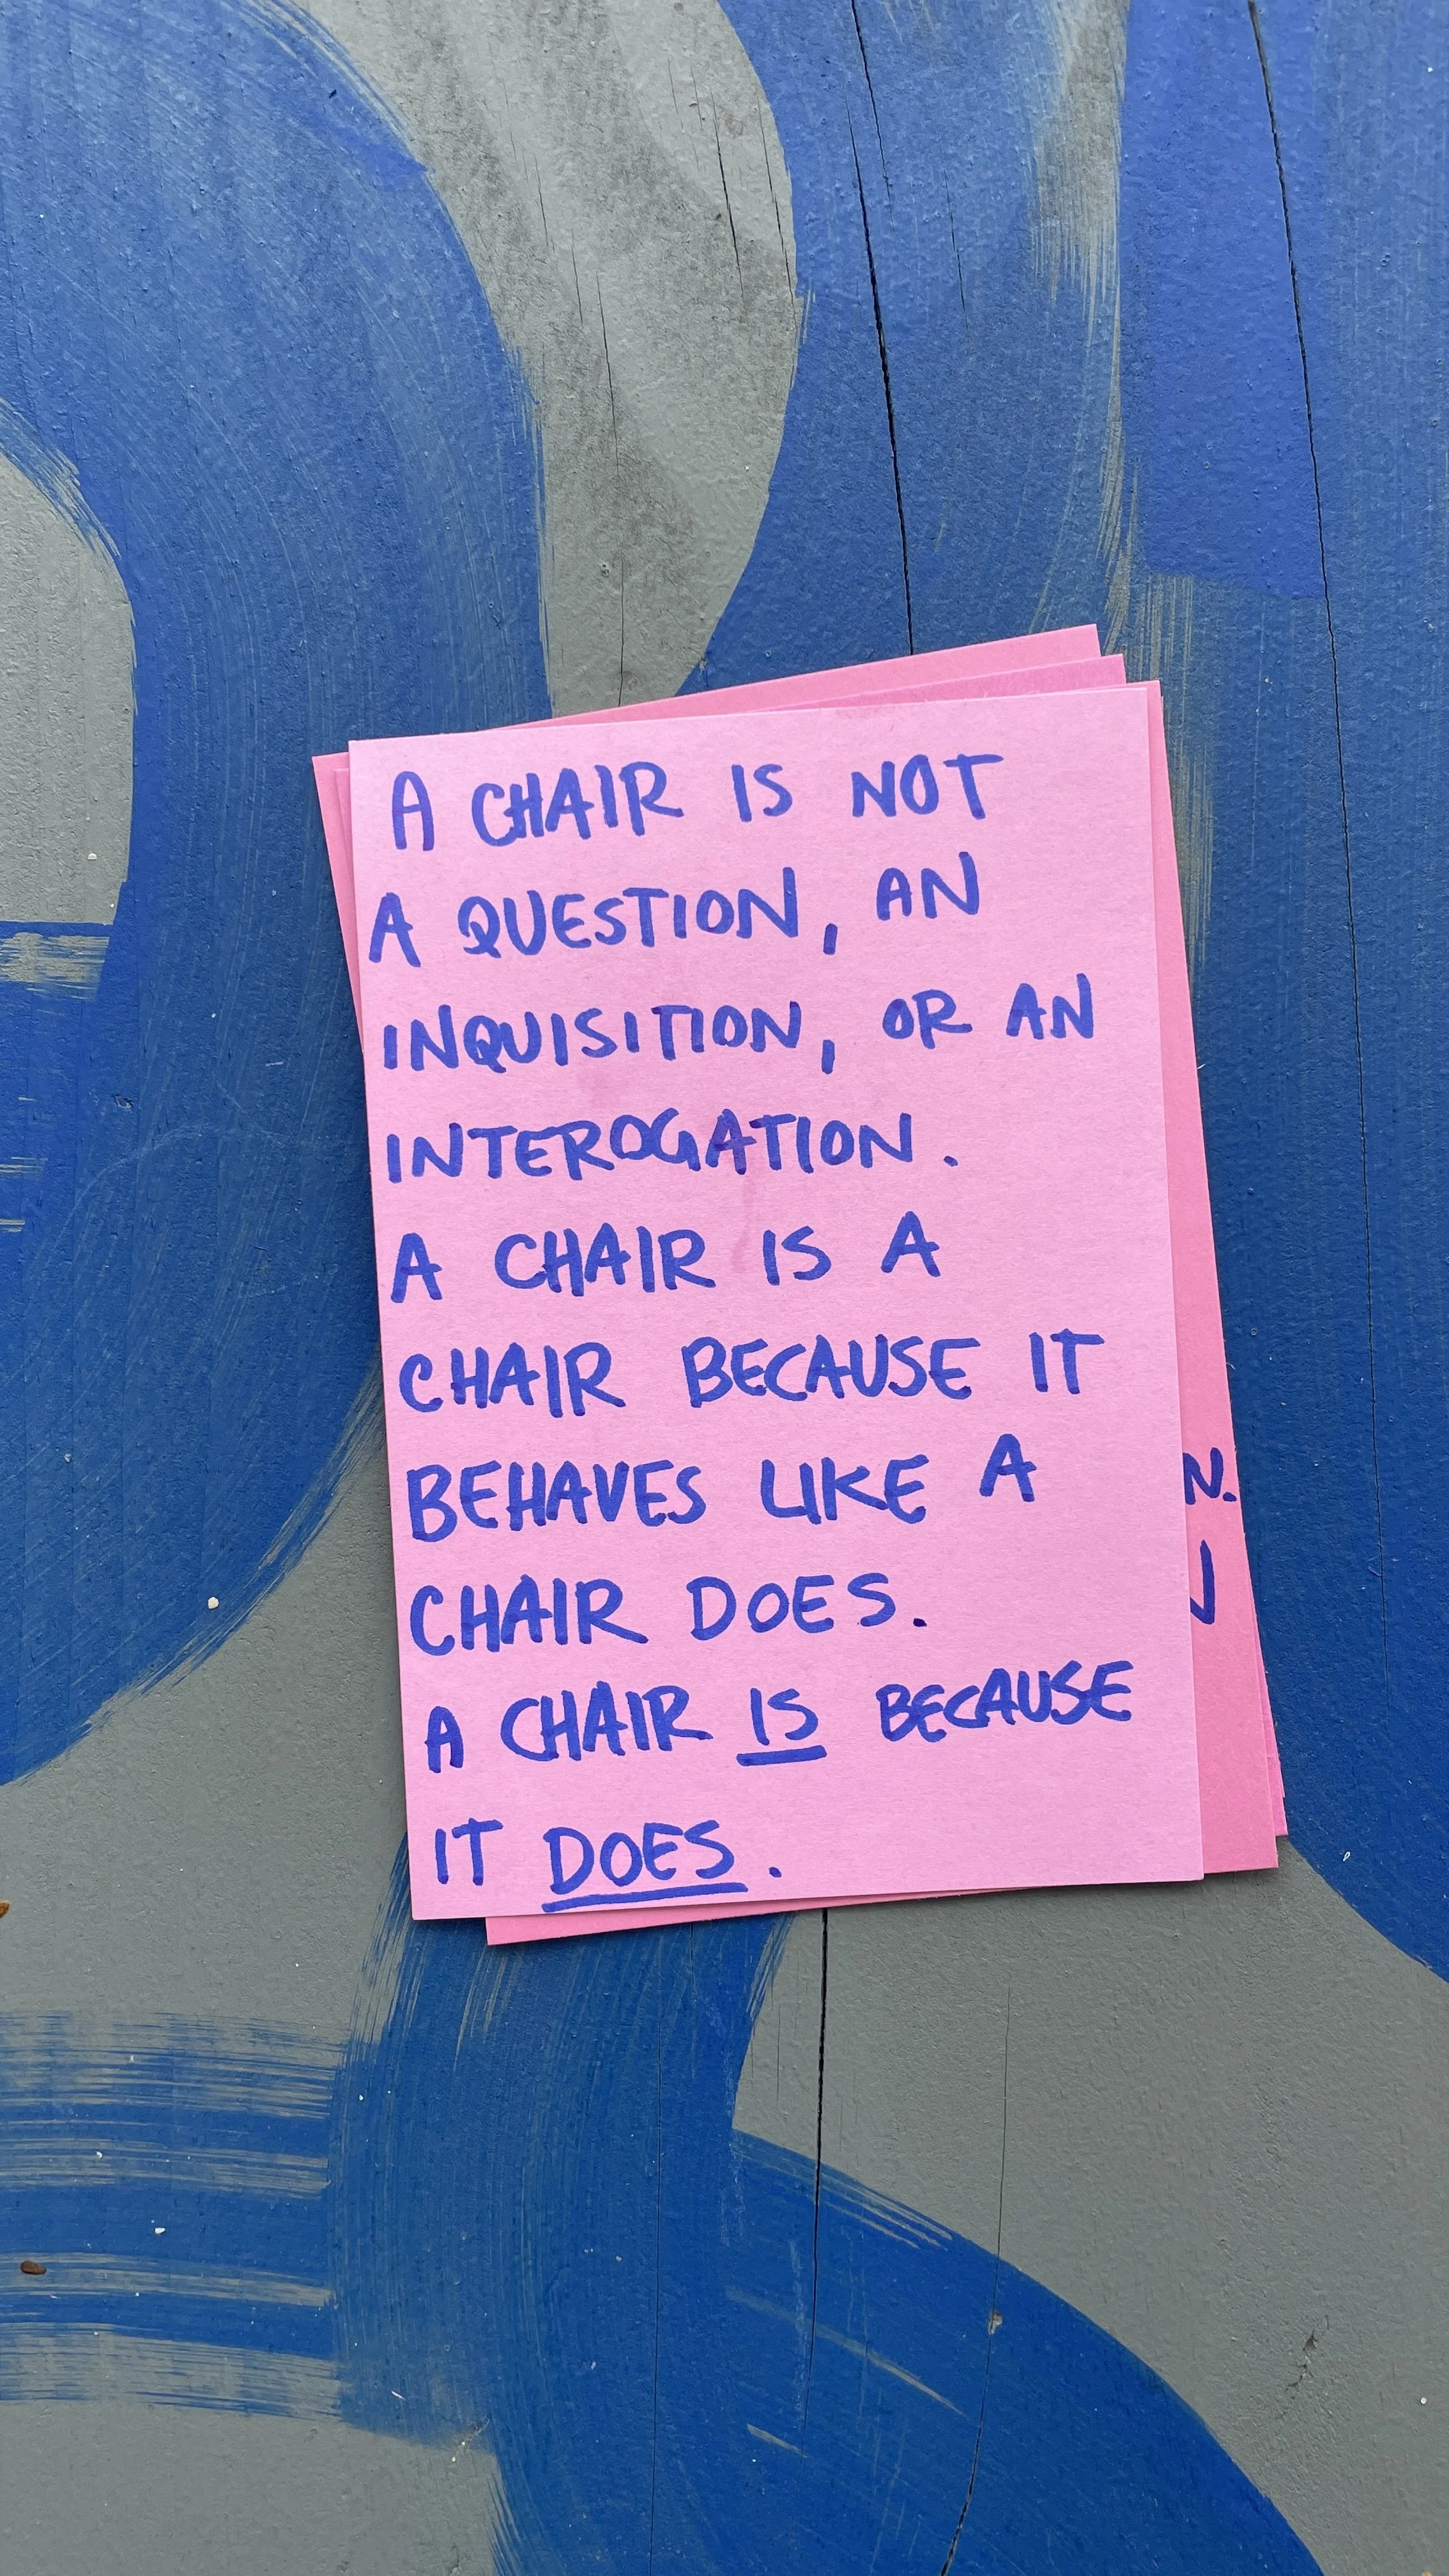 A CHAIR IS NOT
A QUESTION, AN
INQUISITION, OR AN
INTEROGATION.
A CHAIR IS A
CHAIR BECAUSE IT
BEHAVES LIKE A
CHAIR DOES.
A CHAIR IS BECAUSE
IT DOES.